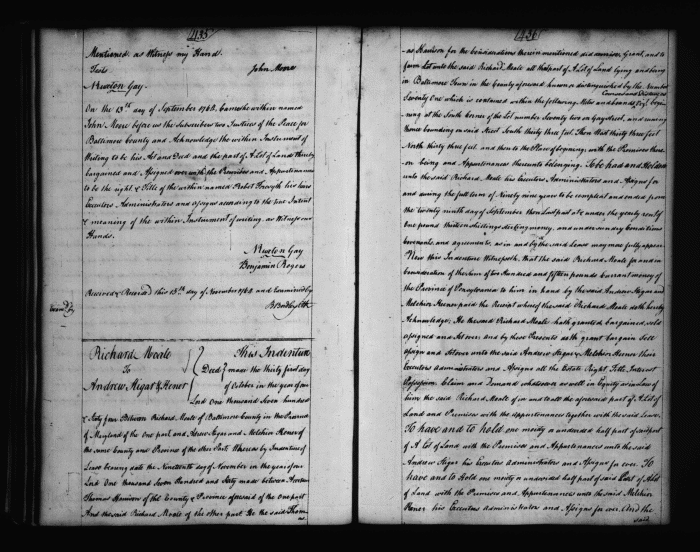 435
Mentioned as Witness my Hand.
Teste John Moore
Newton Gay.
On the 13th day of September 1764. Came the within named
John Moore before us the Subscribers two Justices of the Peace for
Baltimore County and Acknowledge the within Instrument of
Writing to be his Act and Deed and the part of a Lot of Land thereby
bargained and Assigned over with the Premises and Appurtenances
to be the right & Title of the within named Robet Forsyth his heirs
Executors Administrators and assigns according to the true Intent
& meaning of the within Instrument of writing. as Witness our
Hands.
Newton Gay
Benjamin Rogers
Received & Record'd this 13th day of November 1764 and Examined by
Richard Moale
To
Andrew, Stigar & Honer
Deed
This Indenture
made the thirty first day
of October in the year of our
Lord One thousand Seven hundred
& Sixty four Between Richard Moale of Baltimore County in the Province
of Maryland of the One part and Andrew Stigar and Melchior Honer of
the same County and Province of the other Part. Whereas by Indenture of
Lease bearing date the Nineteenth day of November in the year of our
Lord One thousand Seven hundred and Sixty made between
Thomas Harrison of the County & Province aforesaid of the one part
And the said Richard Moale of the other part. He the said Thom
as
436
-as Harrison for the Considerations therein mentioned did demise, Grant, and to
farm Let unto the said Richard Moale all that part of A Lot of Land lying and being
in Baltimore Town in the County aforesaid known or distinguished by the Number
Seventy One which is contained within the following Metes and bounds Courses and Distances Viz. begin
ning at the South Corner of the Lot number Seventy two on Gay street, and running
thence bounding on said Street South thirty three feet, Then West thirty three feet
North thirty three feet and then to the Place of beginning; with the Premises there
on being and Appurtenances thereunto belonging. To be had and Holden
unto the said Richard Moale his Executors Administrators and Assigns for
and during the full term of Ninety nine years to be compleat and ended from
the twenty ninth day of September then Last past at & under the yearly rent of
One pound thirteen shillings sterling money, and under sundry Conditions
Covenants, and agreements, as in and by the said Lease may more fully appear.
Now this Indenture Witnesseth that the said Richard Moale for and in
Consideration of the Sum of two Hundred and fifteen pounds Currant money of
the Province of Pensylvania to him in hand by the said Andrew Stigar and
Melchior Honer paid the Receipt whereof the said Richard Moale doth hereby
Acknowledge. He the said Richard Moale hath granted, bargained, sold
assigned and Set over and by these Presents doth grant bargain Sell
Assign and Set over unto the said Andrew Stigar & Melchior Honer their
Executors administrators and Assigns all the Estate Right Title Interest
Possession Claim and Demand whatsoever as well in Equity as in Law of
him the said Richard Moale of in and to all the aforesaid part of A Lot of
Land and Premises with the appurtenances together with the said Lease.
To have and to hold one moiety or undivided half part of said part
of A Lot of Land with the Premises and Appurtenances unto the said
Andrew Stigar his Executors administrators and Assigns for ever. To
have and to Hold one moiety or undivided half part of said Part of A Lot
of Land with the Premises and Appurtenances unto the said Melchior
Honer his Executors administrators and Assigns for ever. And the
said